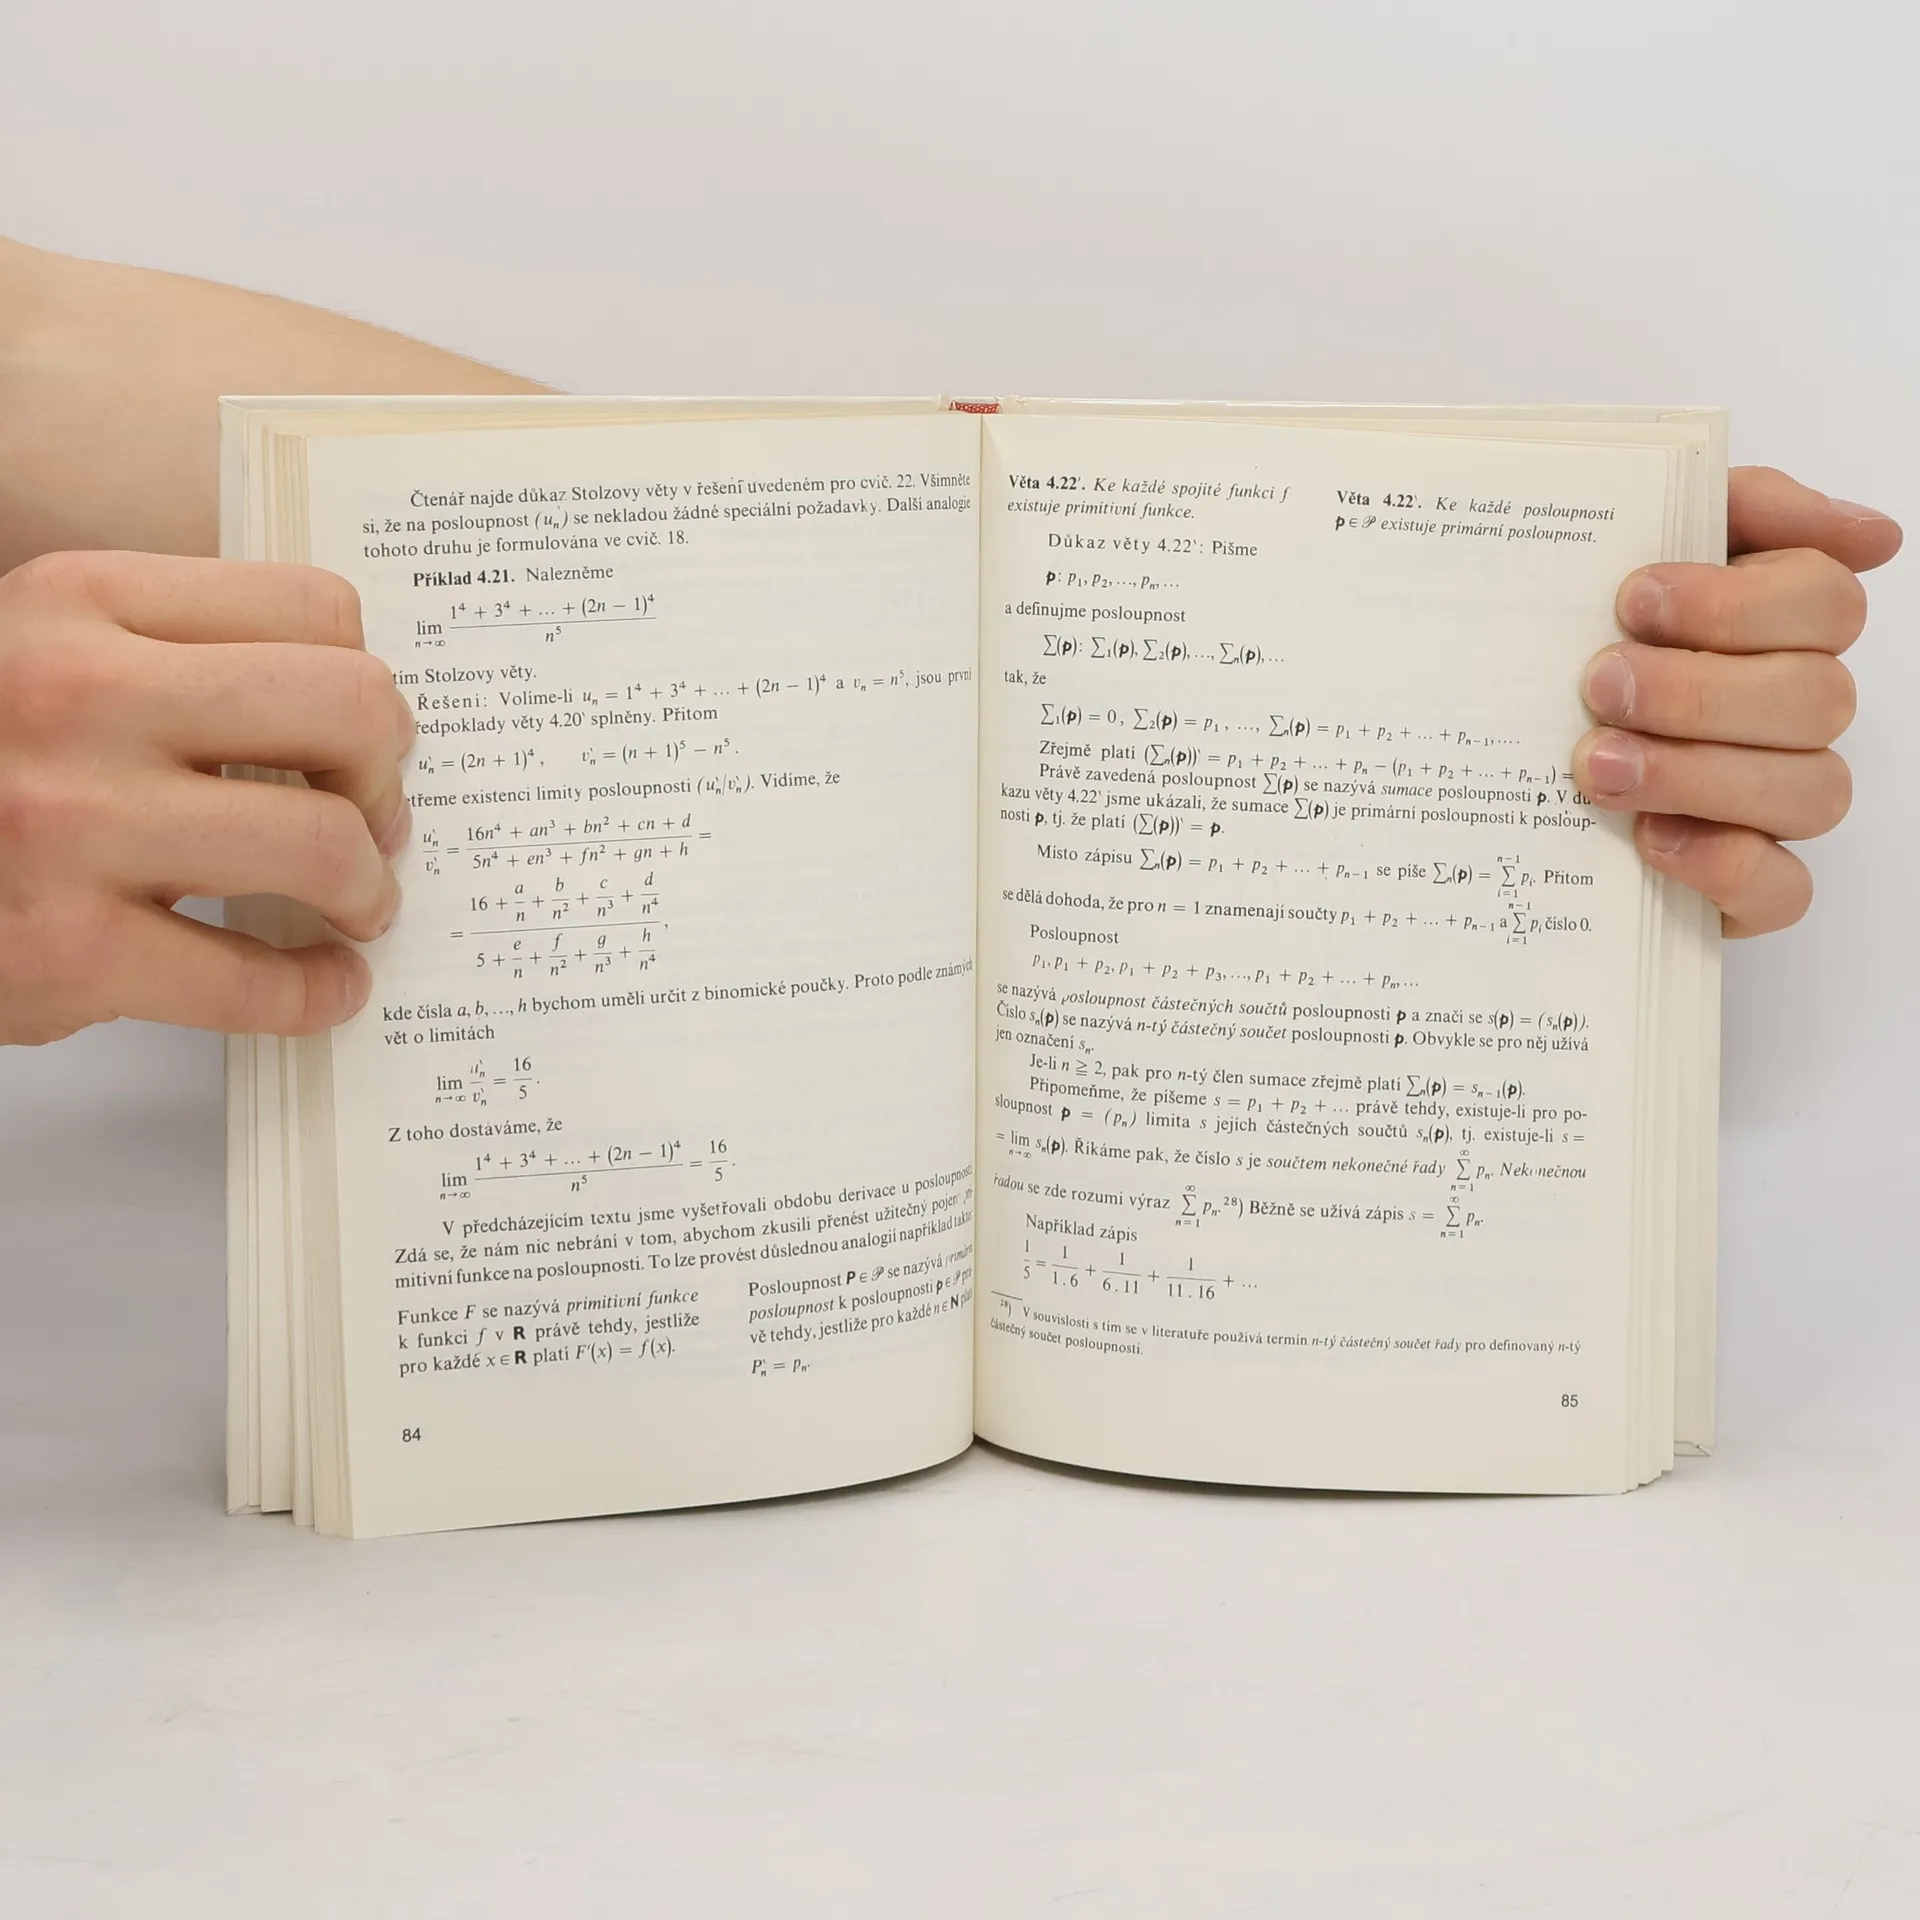 Čtenář najde důkaz Stolzovy věty v řešení uvedeném pro cvič. 22. Všimněte
si, že na posloupnost (u‵ₙ) se nekladou žádné speciální požadavky. Další analogie
tohoto druhu je formulována ve cvič. 18.
Příklad 4.21. Nalezněme
lim n→∞ (1⁴ + 3⁴ + ... + (2n − 1)⁴)/n⁵
tím Stolzovy věty.
Řešení: Volíme-li uₙ = 1⁴ + 3⁴ + ... + (2n − 1)⁴ a vₙ = n⁵, jsou první
ředpoklady věty 4.20‵ splněny. Přitom
u‵ₙ = (2n + 1)⁴, v‵ₙ = (n + 1)⁵ − n⁵.
třeme existenci limity posloupnosti (u‵ₙ/v‵ₙ). Vidíme, že
u‵ₙ/v‵ₙ = (16n⁴ + an³ + bn² + cn + d)/(5n⁴ + en³ + fn² + gn + h) =
= (16 + a/n + b/n² + c/n³ + d/n⁴)/(5 + e/n + f/n² + g/n³ + h/n⁴),
kde čísla a, b, ..., h bychom uměli určit z binomické poučky. Proto podle známých
vět o limitách
lim n→∞ u‵ₙ/v‵ₙ = 16/5.
Z toho dostáváme, že
lim n→∞ (1⁴ + 3⁴ + ... + (2n − 1)⁴)/n⁵ = 16/5.
V předcházejícím textu jsme vyšetřovali obdobu derivace u posloupnosti.
Zdá se, že nám nic nebrání v tom, abychom zkusili přenést užitečný pojem
mitivní funkce na posloupnosti. To lze provést důslednou analogií například takto:
Funkce F se nazývá primitivní funkce
k funkci f v R právě tehdy, jestliže
pro každé x ∈ R platí F′(x) = f(x).
Posloupnost P ∈ 𝒫 se nazývá primární
posloupnost k posloupnosti p ∈ 𝒫
vě tehdy, jestliže pro každé n ∈ N
P‵ₙ = pₙ.
84
Věta 4.22′. Ke každé spojité funkci f
existuje primitivní funkce.
Věta 4.22‵. Ke každé posloupnosti
p ∈ 𝒫 existuje primární posloupnost.
Důkaz věty 4.22‵: Pišme
p: p₁, p₂, ..., pₙ, ...
a definujme posloupnost
∑(p): ∑₁(p), ∑₂(p), ..., ∑ₙ(p), ...
tak, že
∑₁(p) = 0, ∑₂(p) = p₁, ..., ∑ₙ(p) = p₁ + p₂ + ... + pₙ₋₁, ....
Zřejmě platí (∑ₙ(p))‵ = p₁ + p₂ + ... + pₙ − (p₁ + p₂ + ... + pₙ₋₁) =
Právě zavedená posloupnost ∑(p) se nazývá sumace posloupnosti p. V dů-
kazu věty 4.22‵ jsme ukázali, že sumace ∑(p) je primární posloupností k posloup-
nosti p, tj. že platí (∑(p))‵ = p.
Místo zápisu ∑ₙ(p) = p₁ + p₂ + ... + pₙ₋₁ se píše ∑ₙ(p) = ∑_{i=1}^{n−1} pᵢ. Přitom
se dělá dohoda, že pro n = 1 znamenají součty p₁ + p₂ + ... + pₙ₋₁ a ∑_{i=1}^{n−1} pᵢ číslo 0.
Posloupnost
p₁, p₁ + p₂, p₁ + p₂ + p₃, ..., p₁ + p₂ + ... + pₙ, ...
se nazývá posloupnost částečných součtů posloupnosti p a značí se s(p) = (sₙ(p)).
Číslo sₙ(p) se nazývá n-tý částečný součet posloupnosti p. Obvykle se pro něj užívá
jen označení sₙ.
Je-li n ≧ 2, pak pro n-tý člen sumace zřejmě platí ∑ₙ(p) = sₙ₋₁(p).
Připomeňme, že píšeme s = p₁ + p₂ + ... právě tehdy, existuje-li pro po-
sloupnost p = (pₙ) limita s jejích částečných součtů sₙ(p), tj. existuje-li s =
= lim n→∞ sₙ(p). Říkáme pak, že číslo s je součtem nekonečné řady ∑_{n=1}^{∞} pₙ. Nekonečnou
řadou se zde rozumí výraz ∑_{n=1}^{∞} pₙ.²⁸) Běžně se užívá zápis s = ∑_{n=1}^{∞} pₙ.
Například zápis
1/5 = 1/(1.6) + 1/(6.11) + 1/(11.16) + ...
²⁸) V souvislosti s tím se v literatuře používá termín n-tý částečný součet řady pro definovaný n-tý
částečný součet posloupnosti.
85